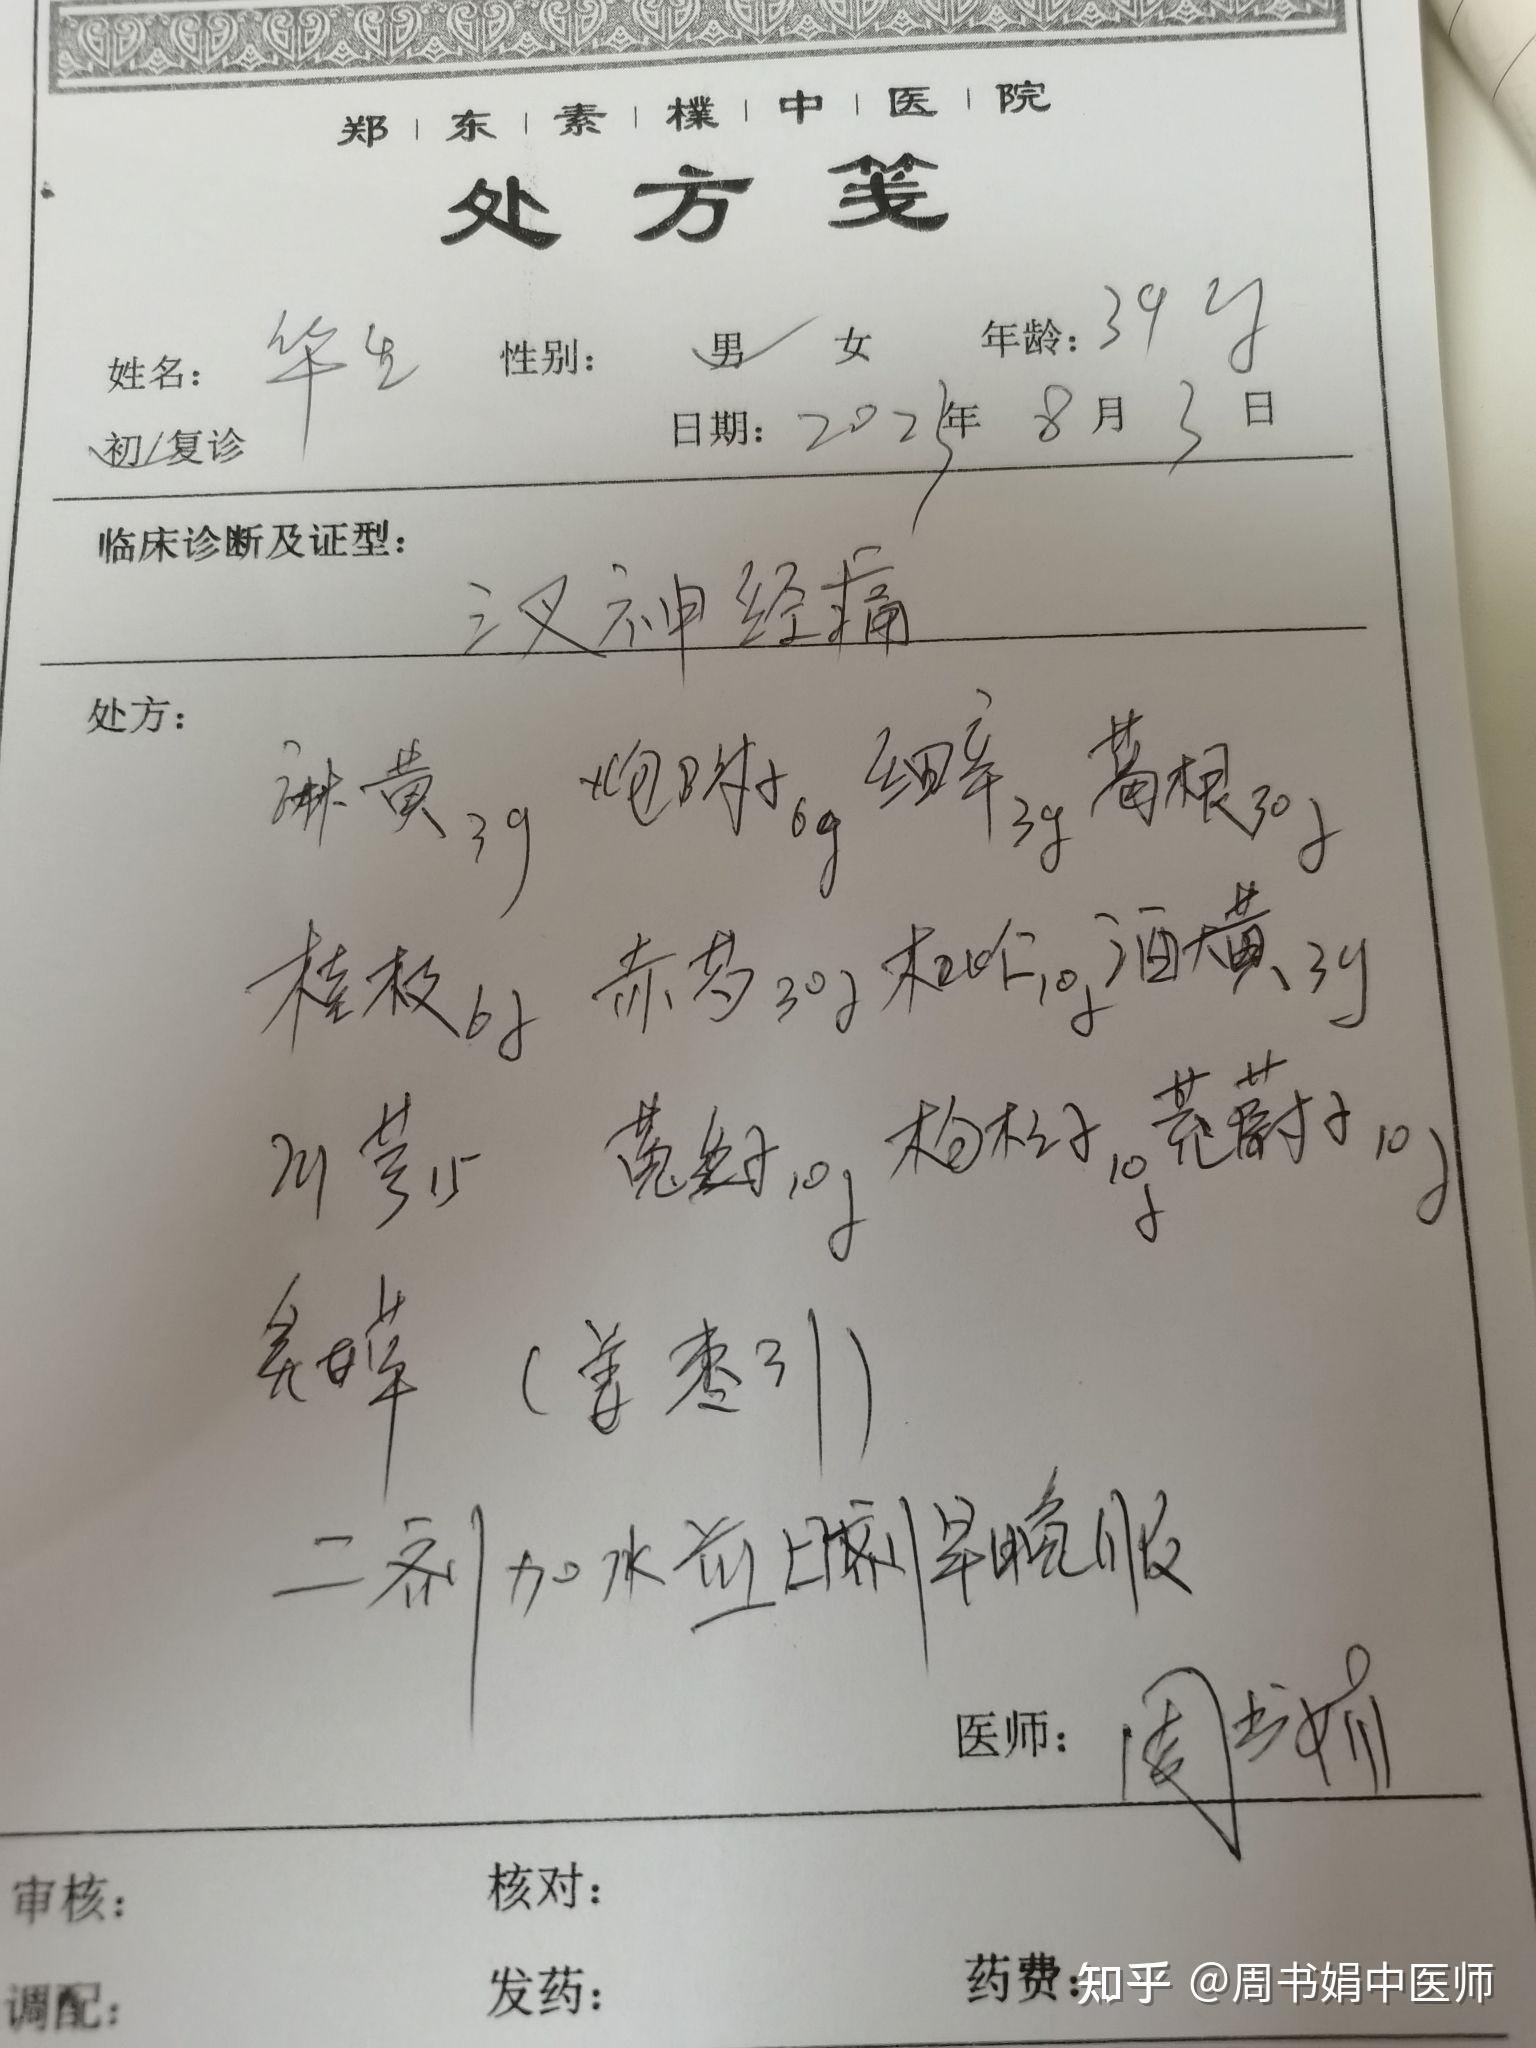 郑东素樸中医院
处方笺
姓名： 华生 性别： 男✓ 女 年龄：39岁
初/复诊 日期：2025年8月3日
临床诊断及证型：
三叉神经痛
处方：
麻黄3g 炮附子6g 细辛3g 葛根30g
桂枝6g 赤芍30g 桃仁10g 酒大黄3g
川芎15 蔓荆子10g 枸杞子10g 茺蔚子10g
炙甘草 (姜枣引)
二剂加水煎日一剂早晚服
医师： 周书娟
审核： 核对：
调配： 发药： 药费：
知乎 @周书娟中医师